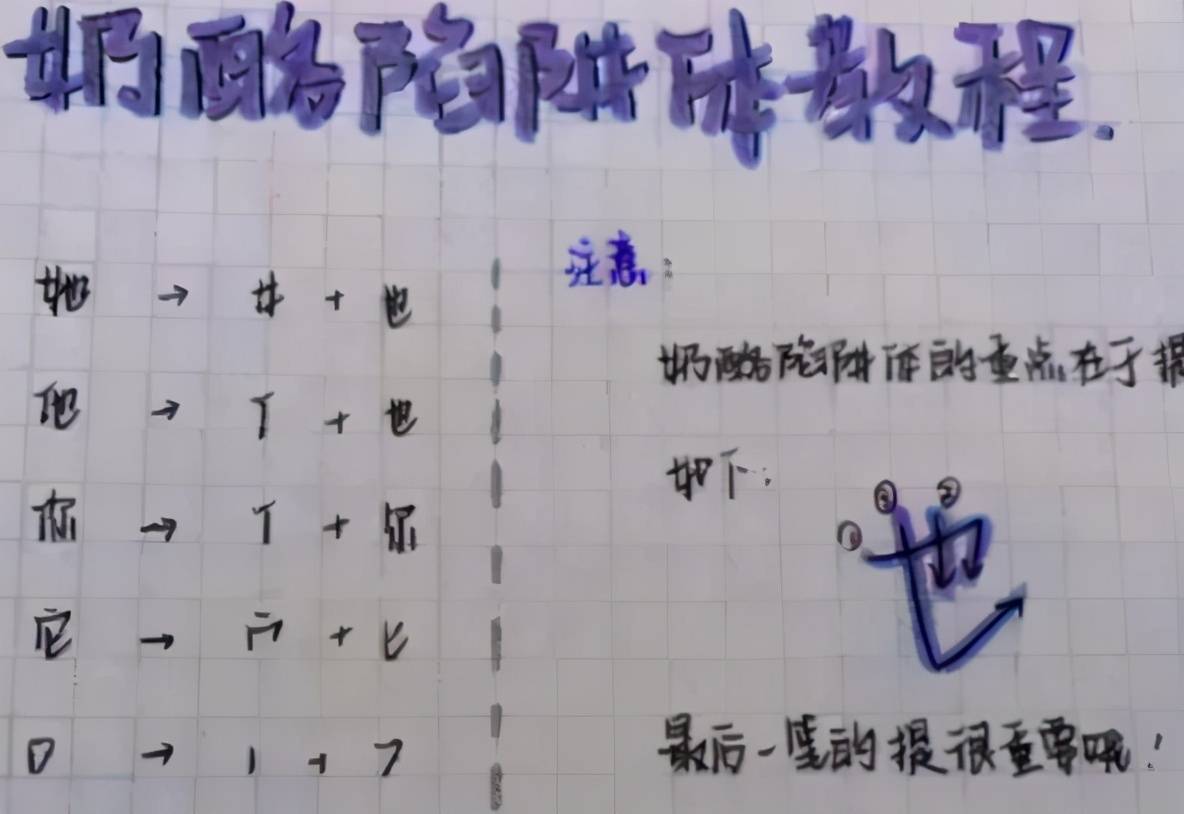 奶酪陷阱体教程.
她 → 女 + 也
他 → 亻 + 也
你 → 亻 + 尔
它 → 宀 + 匕
口 → 丨 + ㇕
注意:
奶酪陷阱体的重点在于提
如下:
① ② ③
也
最后一笔的提很重要哦!